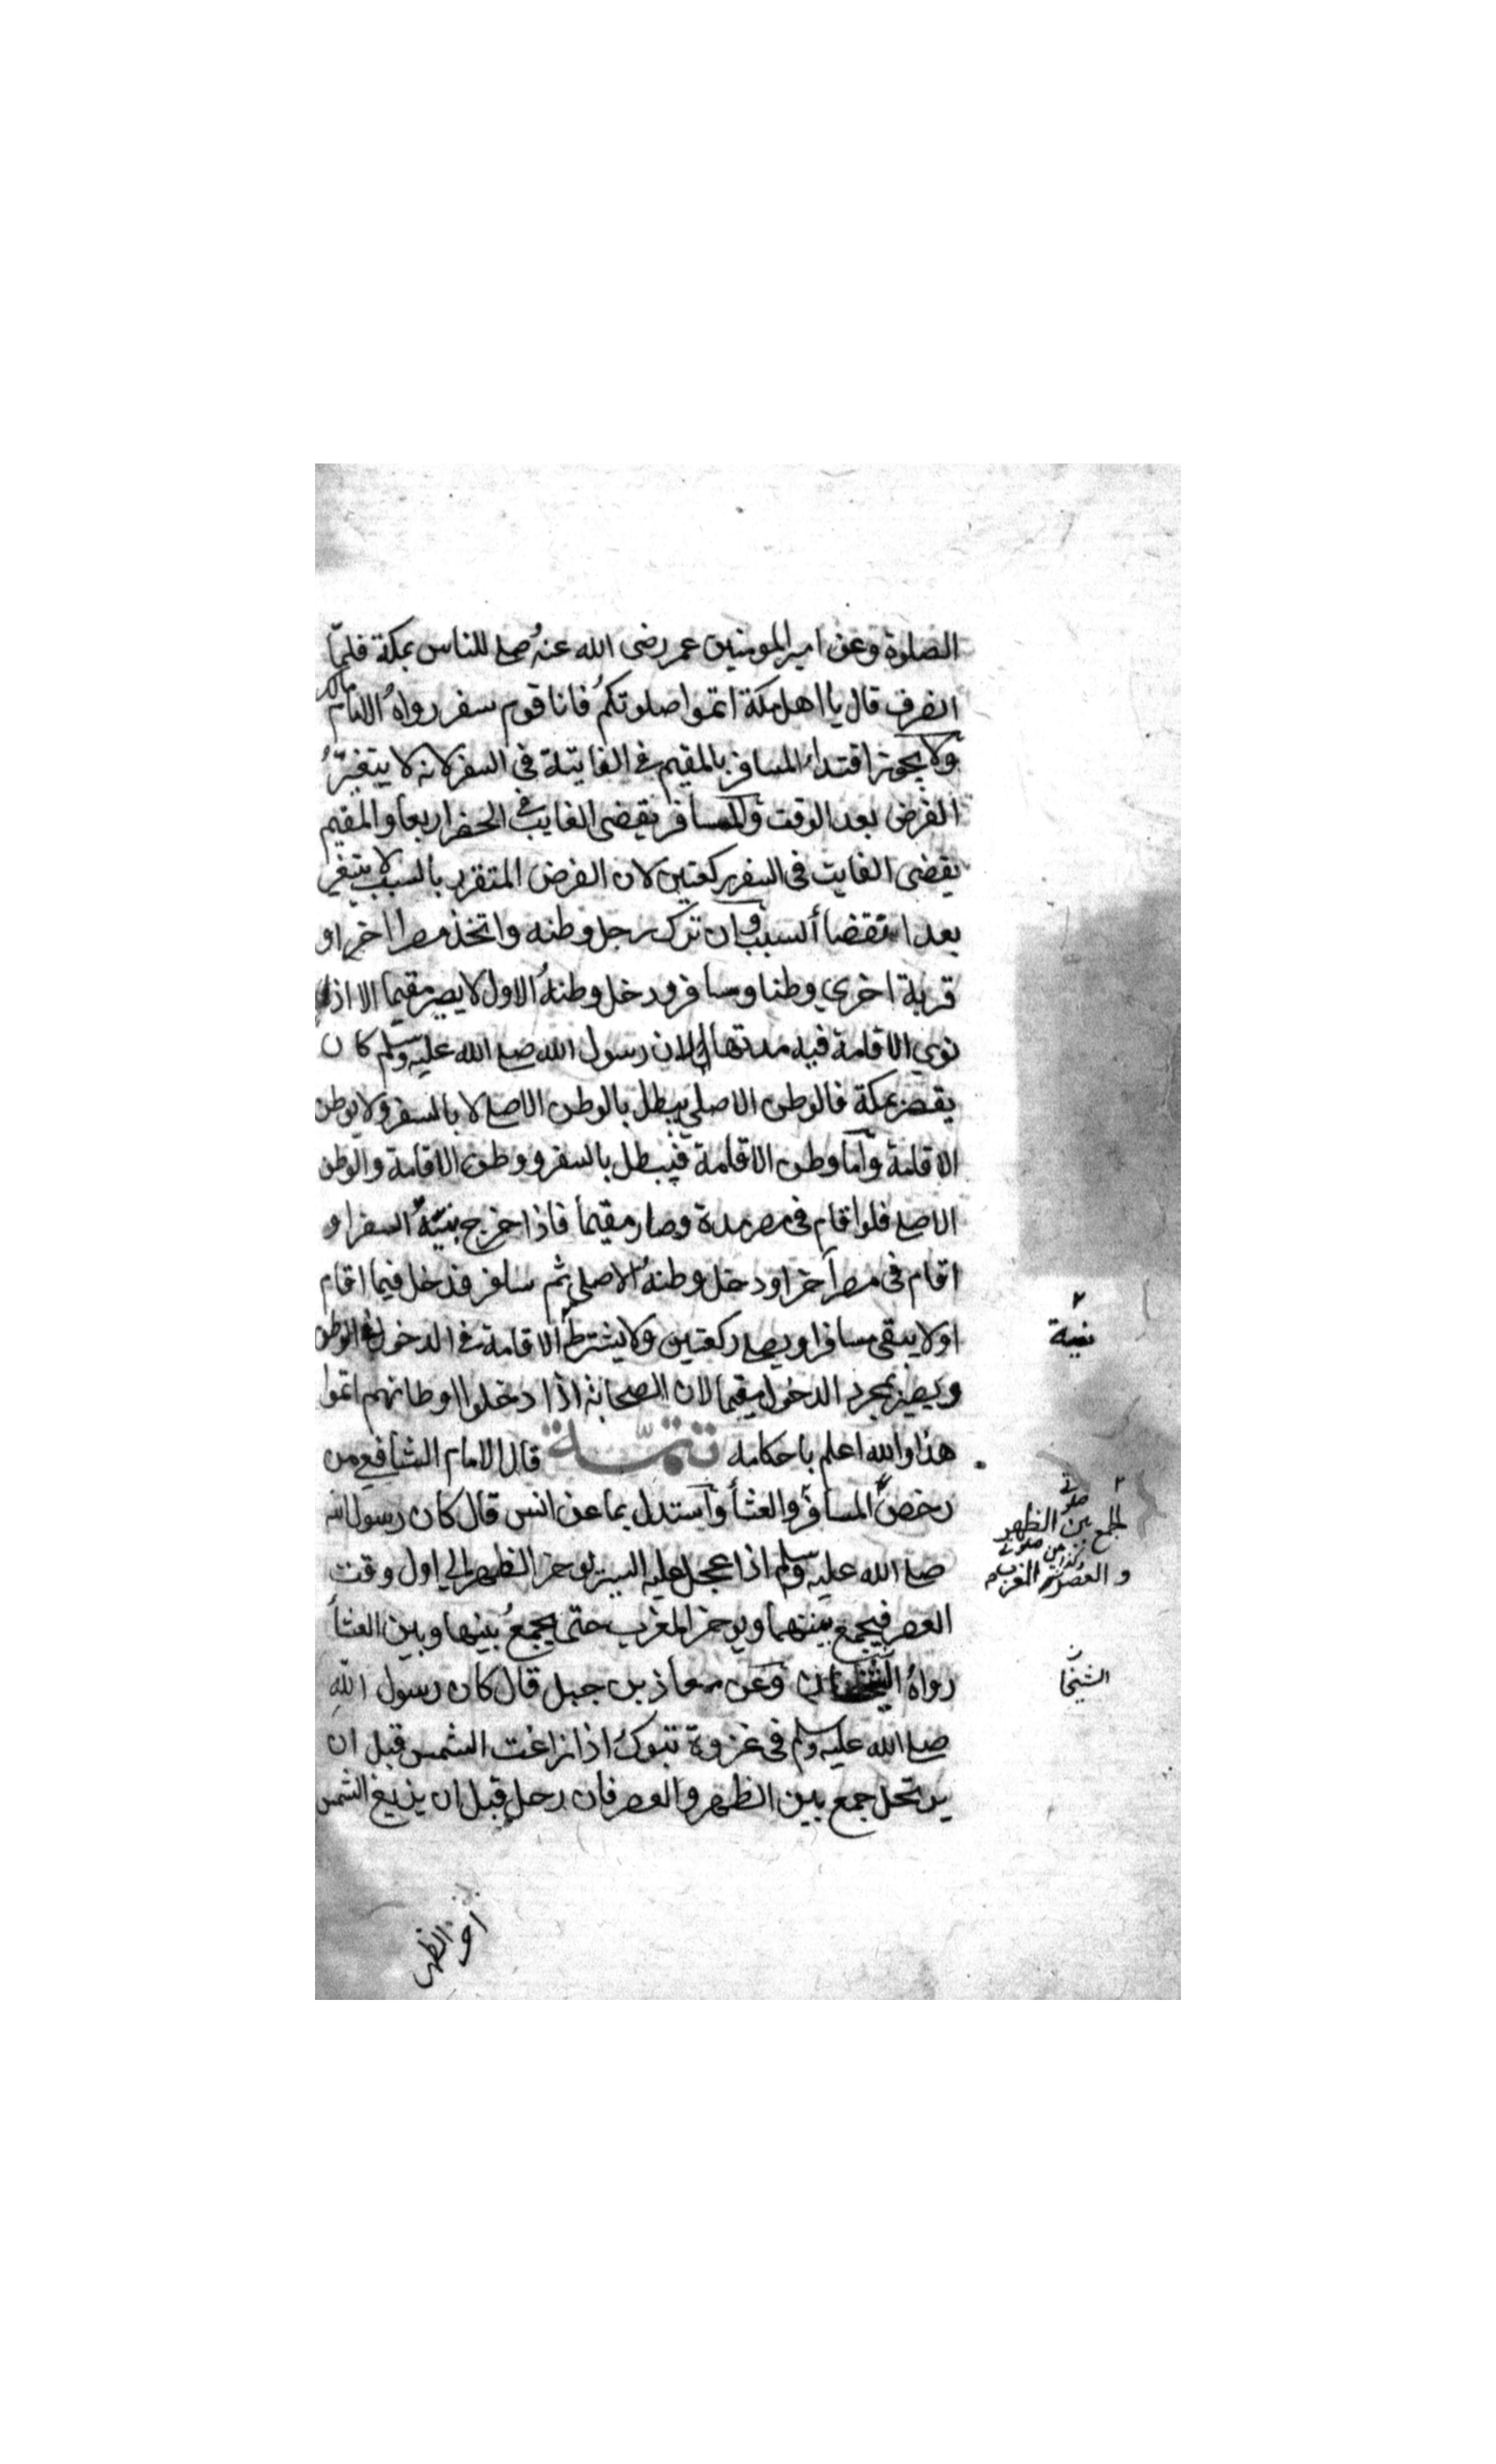 الصلوة وعن امير المومنين عمر رضى الله عنه صلى للناس بمكة فلما
انصرف قال يا اهل مكة اتموا صلوتكم فانا قوم سفر رواه الامام مالك
ولا يجوز اقتداء المسافر بالمقيم فى الفايتة فى السفر لانه لا يتغير
الفرض بعد الوقت والمسافر يقضى الفايت فى الحضر اربعا والمقيم
يقضى الفايت فى السفر ركعتين لان الفرض المتقرر بالسبب لا يتغير
بعد انقضأ السبب وان ترك رجل وطنه واتخذ مصرا اخر او
قرية اخري وطنا وسافر ودخل وطنه الاول لا يصير مقيما الا اذا
نوي الاقامة فيه مدتها لان رسول الله صلى الله عليه وسلم كان
يقصر بمكة فالوطن الاصلي يبطل بالوطن الاصلى لا بالسفر ولا بوطن
الاقامة واما وطن الاقامة فيبطل بالسفر ووطن الاقامة والوطن
الاصلى فلو اقام فى مصر مدة وصار مقيما فاذا خرج بنية السفر او
اقام فى مصر آخر او دخل وطنه الاصلي ثم سافر فدخل فيما اقام
اولا يبقى مسافرا ويصلى ركعتين ولا يشترط الاقامة فى الدخول فى الوطن
نية
ويصير بمجرد الدخول مقيما لان الصحابة اذا دخلوا اوطانهم اتموا
هذا والله اعلم باحكامه تتمـــة قال الامام الشافعي من
رخص المسافر والعشأ واستدل بما عن انس قال كان رسول الله
الجمع بين صلوتى الظهر
والعصر وكذا بين صلوتى المغرب
صلى الله عليه وسلم اذا عجل عليه السير يوخر الظهر الي اول وقت
العصر فيجمع بينهما ويوخر المغرب حتى يجمع بينها وبين العشأ
رواه الشيخان وعن معاذ بن جبل قال كان رسول الله
الشيخان
صلى الله عليه وسلم فى غزوة تبوك اذا زاغت الشمس قبل ان
يرتحل جمع بين الظهر والعصر فان رحل قبل ان يزيغ الشمس
اخر الظهر